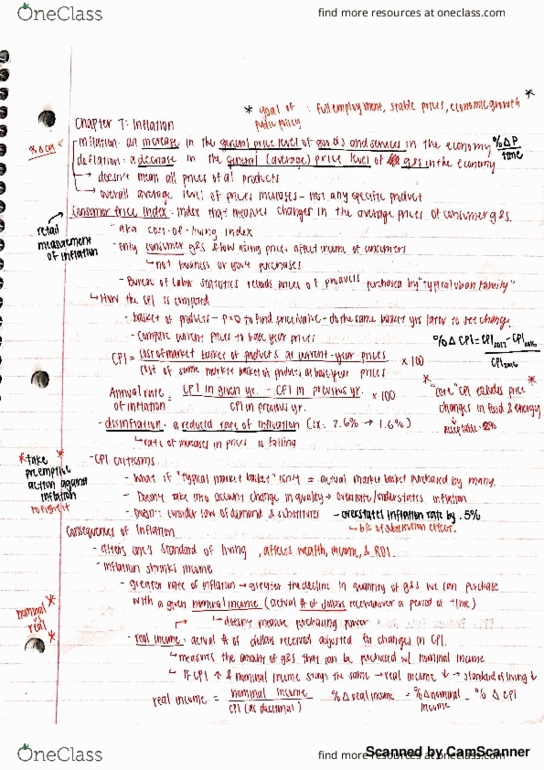 OneClass
find more resources at oneclass.com
* goal of : full employment, stable prices, economic growth *
public policy
Chapter 7: Inflation
%Δ CPI
inflation: an increase in the general price level of goods and services in the economy %ΔP/time
deflation: a decrease in the general (average) price level of g&s in the economy
↳ doesn't mean all prices of all products
↳ overall average level of prices increases - not any specific product
Consumer Price Index - index that measures changes in the average prices of consumer g&s.
retail measurement of inflation
- aka cost-of-living index
- only consumer g&s using prices affect income of consumers
↳ not business or gov't purchases
- Bureau of Labor Statistics records prices of products purchased by "typical urban family"
↳ How the CPI is computed
- basket of products - to find price/value - do the same basket yrs later to see change
- Compare current prices to base year prices
%Δ CPI = CPI2017 - CPI2016 / CPI2016
CPI = cost of market basket of products at current-year prices / cost of same market basket of products at base year prices x 100
Annual rate of inflation = CPI in given yr. - CPI in previous yr. / CPI in previous yr. x 100
* "core" CPI excludes price *
changes in food & energy
↳ acceptable
- disinflation - a reduced rate of inflation (ex: 2.6% → 1.6%)
↳ rate of increases in prices is falling
*take preemptive action against inflation to fight it *
- CPI criticisms
- What if "typical market basket" isn't = actual market basket purchased by many
- Doesn't take into account change in quality → overstate/understates inflation
- Doesn't consider law of demand & substitutes - overstates inflation rate by .5%
↳ b/c of substitution effect.
Consequences of Inflation
- alters one's standard of living, affects wealth, income, & ROI.
- inflation shrinks income
- greater rate of inflation → greater the decline in quantity of g&s we can purchase
with a given nominal income (actual # of dollars received over a period of time)
↳ doesn't measure purchasing power
nominal vs real *
- real income - actual # of dollars received adjusted for changes in CPI.
↳ measures the amount of g&s that can be purchased w/ nominal income
↳ If CPI ↑ & nominal income stays the same → real income ↓ → standard of living ↓
real income = nominal income / CPI (as decimal) %Δ real income = %Δ nominal income - %Δ CPI
OneClass
find more resources at oneclass.com
Scanned by CamScanner